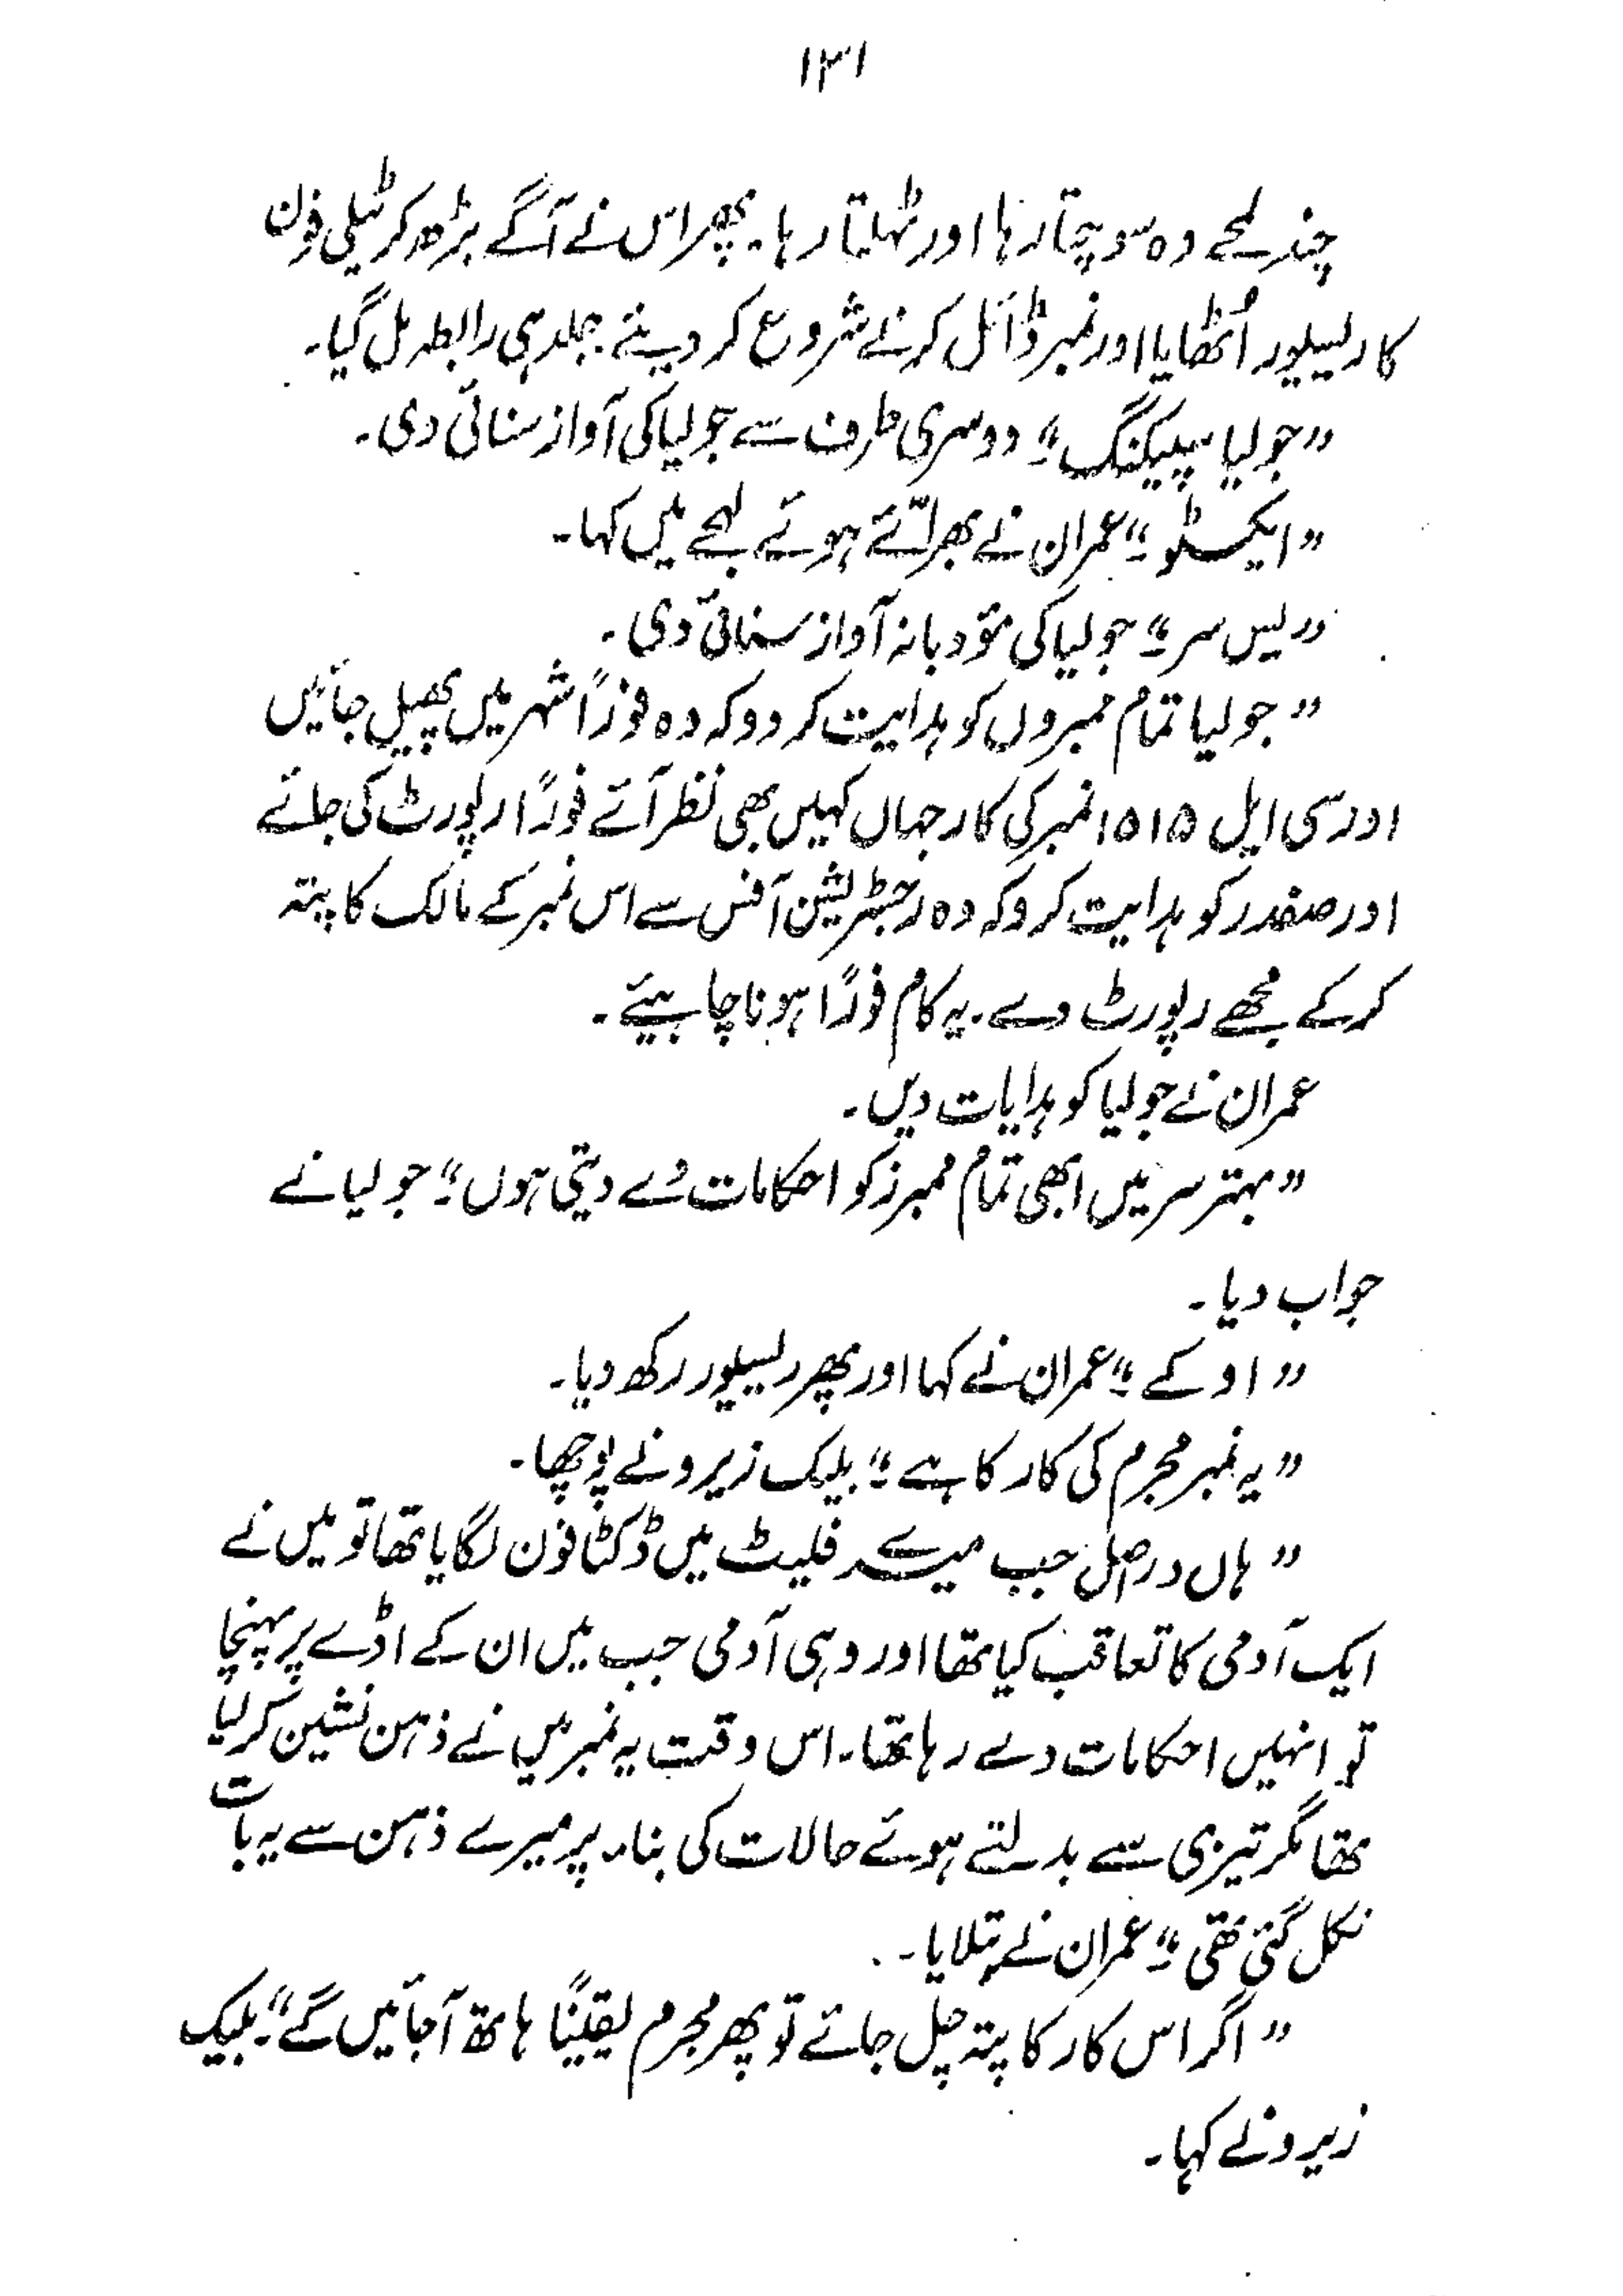 ۱۳۱
چند لمحے وہ سوچتا رہا اور ٹہلتا رہا۔ پھر اس نے آگے بڑھ کر ٹیلی فون
کا ریسیور اُٹھایا اور نمبر ڈائل کرنے شروع کر دیئے۔ جلد ہی رابطہ مل گیا۔
"جولیا سپیکنگ"۔ دوسری طرف سے جولیا کی آواز سنائی دی۔
"ایکسٹو"۔ عمران نے بھرائے ہوئے لہجے میں کہا۔
"یس سر"۔ جولیا کی مؤدبانہ آواز سنائی دی۔
"جولیا تمام ممبروں کو ہدایت کر دو کہ وہ فوراً شہر میں پھیل جائیں
اور سی ایل ۱۵۱۵ نمبر کی کار جہاں کہیں بھی نظر آئے فوراً رپورٹ کی جائے
اور صفدر کو ہدایت کرو کہ وہ رجسٹریشن آفس سے اس نمبر کے مالک کا پتہ
کر کے مجھے رپورٹ دے۔ یہ کام فوراً ہونا چاہیئے۔
عمران نے جولیا کو ہدایات دیں۔
"بہتر سر میں ابھی تمام ممبرز کو احکامات دے دیتی ہوں"۔ جولیا نے
جواب دیا۔
"او کے"۔ عمران نے کہا اور پھر ریسیور رکھ دیا۔
"یہ نمبر مجرم کی کار کا ہے"۔ بلیک زیرو نے پوچھا۔
"ہاں دراصل جب میرے فلیٹ میں ڈکٹا فون لگایا تھا تو میں نے
ایک آدمی کا تعاقب کیا تھا اور وہی آدمی جب میں ان کے اڈے پر پہنچا
تو انہیں احکامات دے رہا تھا۔ اس وقت یہ نمبر میں نے ذہن نشین کر لیا
تھا مگر تیزی سے بدلتے ہوئے حالات کی بناء پر میرے ذہن سے یہ بات
نکل گئی تھی"۔ عمران نے بتلایا۔
"اگر اس کار کا پتہ چل جائے تو پھر مجرم یقیناً ہاتھ آجائیں گے"۔ بلیک
زیرو نے کہا۔